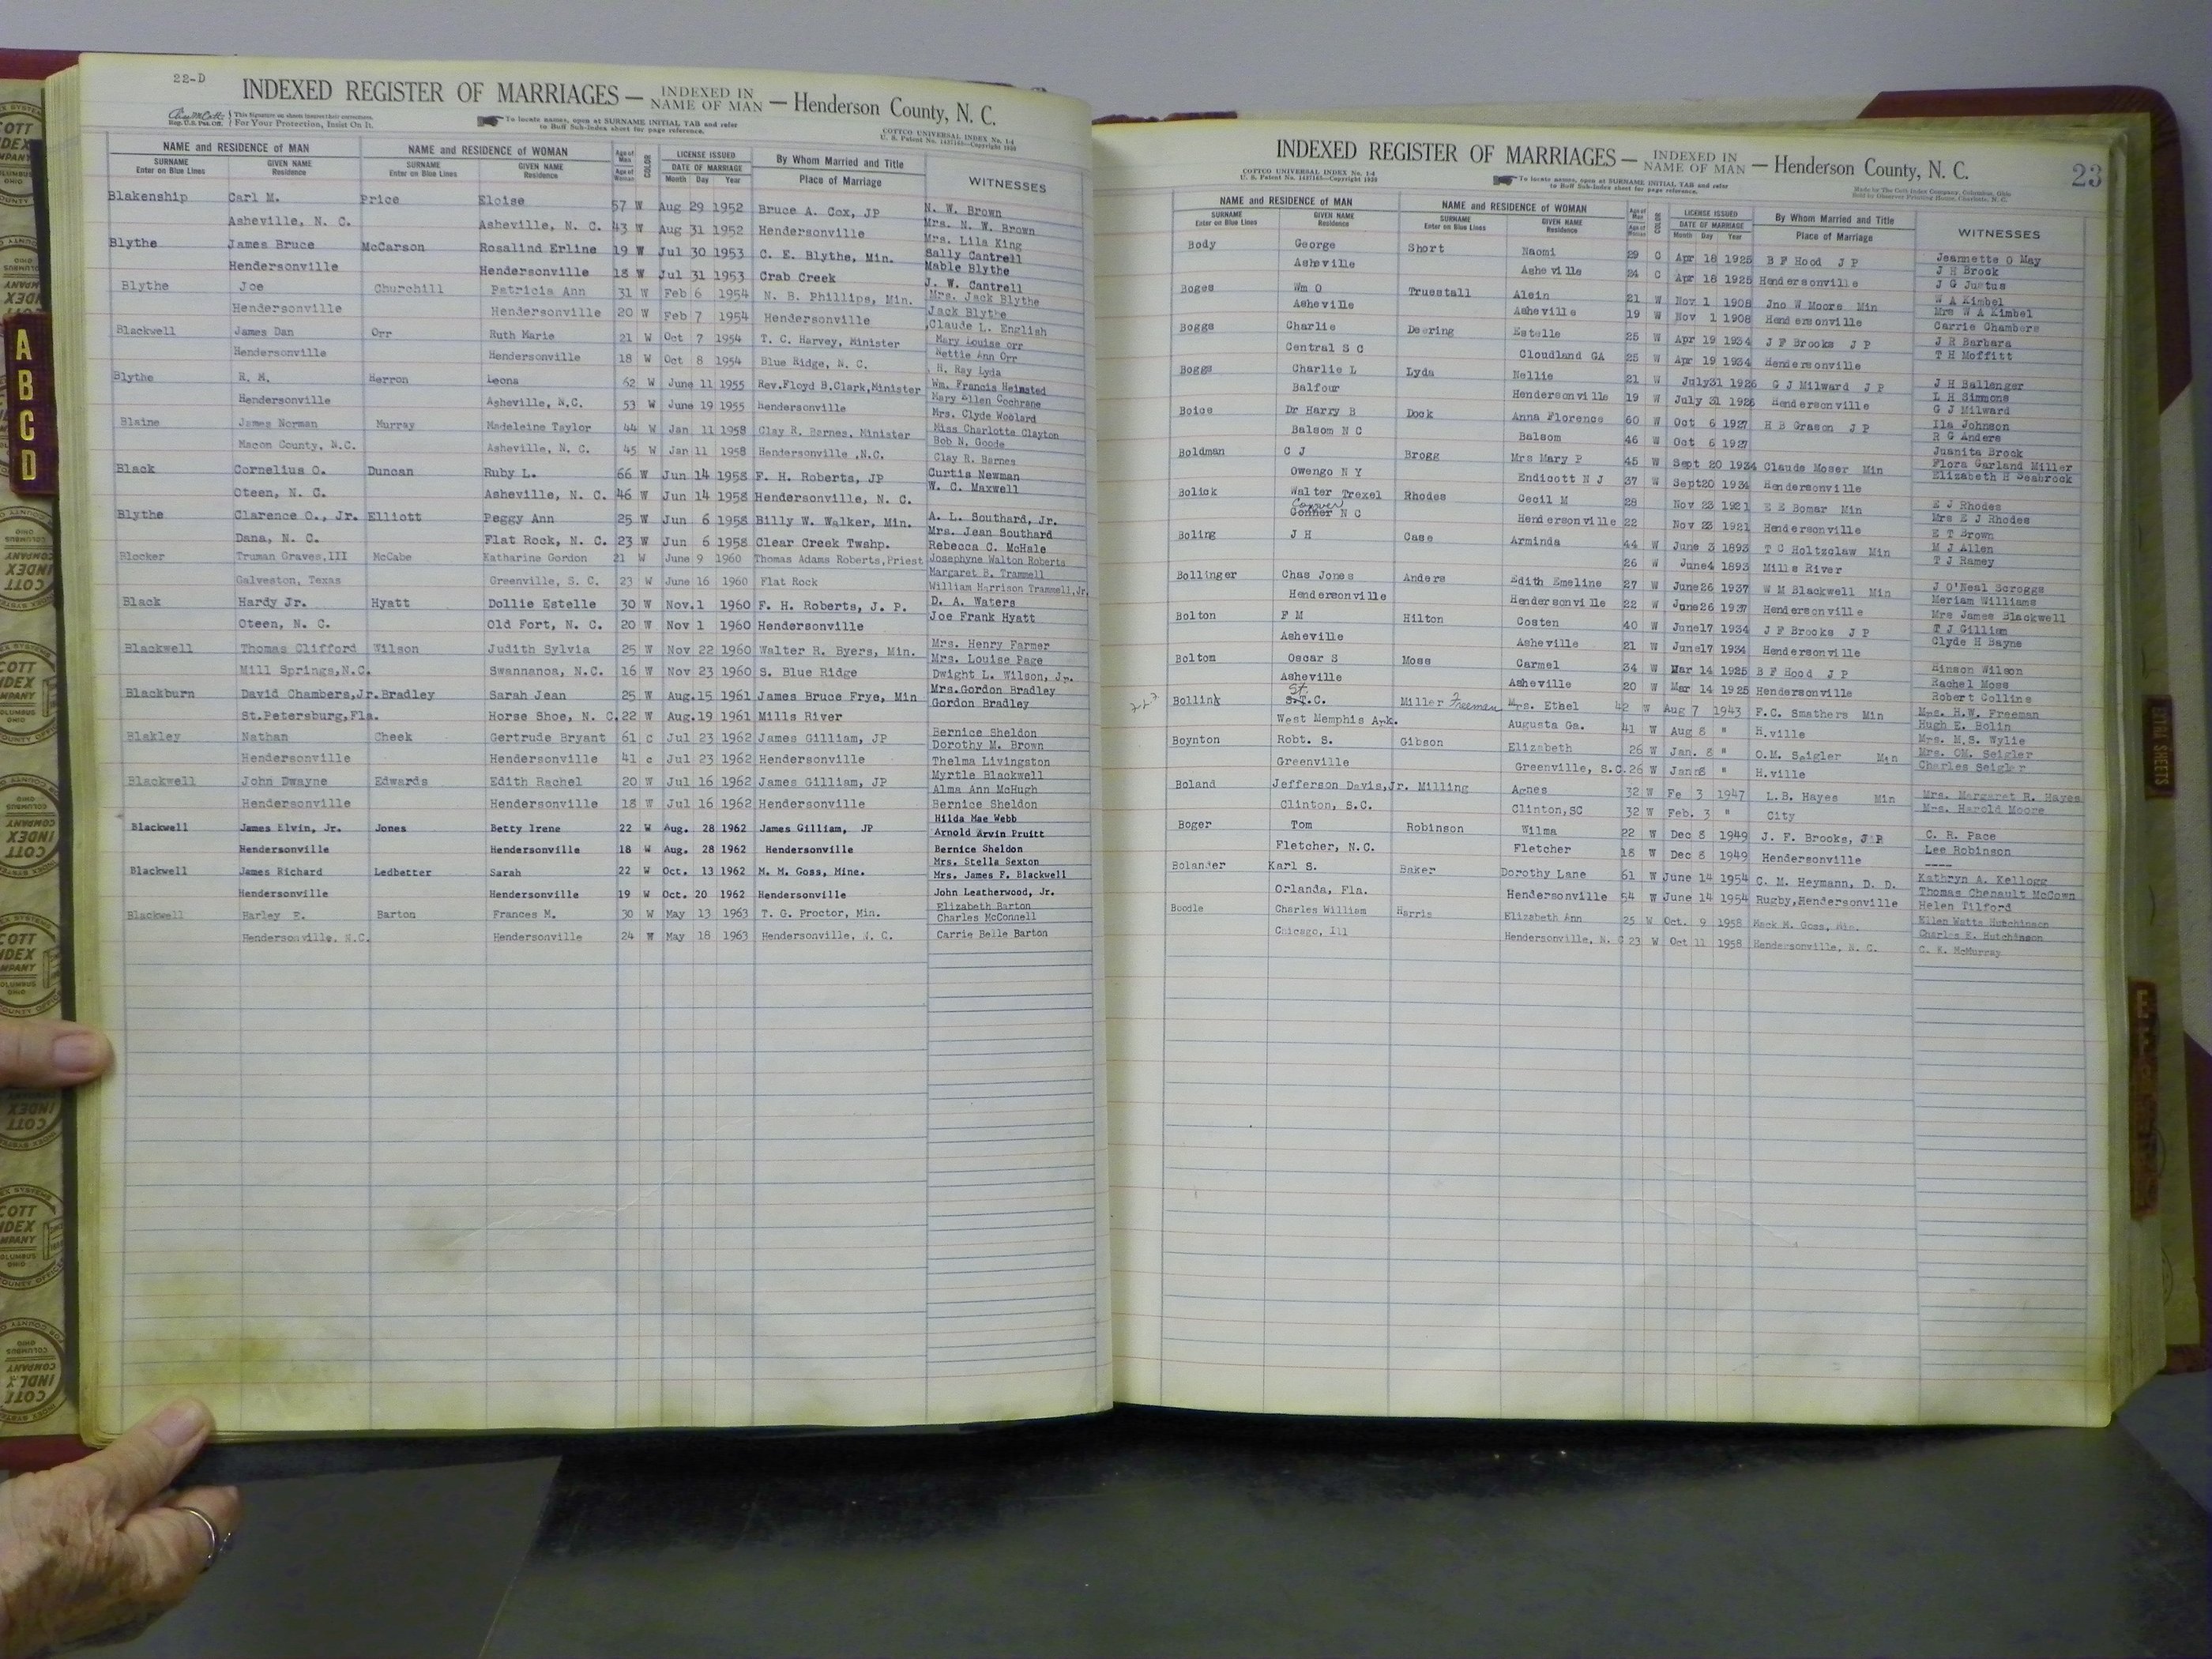 22-D
INDEXED REGISTER OF MARRIAGES — INDEXED IN NAME OF MAN — Henderson County, N. C.
This Signature on sheets insures their correctness. For Your Protection, Insist On It.
To locate names, open at SURNAME INITIAL TAB and refer to Buff Sub-Index sheet for page reference.
COTTCO UNIVERSAL INDEX No. 1-4
NAME and RESIDENCE OF MAN NAME and RESIDENCE OF WOMAN Age of Man Age of Woman COLOR LICENSE ISSUED By Whom Married and Title WITNESSES
SURNAME Enter on Blue Lines GIVEN NAME Residence SURNAME Enter on Blue Lines GIVEN NAME Residence DATE OF MARRIAGE Month Day Year Place of Marriage
Blakenship Carl M. Price Eloise 57 W Aug 29 1952 Bruce A. Cox, JP N. W. Brown
Asheville, N. C. Asheville, N. C. 43 W Aug 31 1952 Hendersonville Mrs. N. W. Brown
Mrs. Lila King
Blythe James Bruce McCarson Rosalind Erline 19 W Jul 30 1953 C. E. Blythe, Min. Sally Cantrell
Hendersonville Hendersonville 18 W Jul 31 1953 Crab Creek Mable Blythe
J. W. Cantrell
Blythe Joe Churchill Patricia Ann 31 W Feb 6 1954 N. B. Phillips, Min. Mrs. Jack Blythe
Hendersonville Hendersonville 20 W Feb 7 1954 Hendersonville Jack Blythe
Claude L. English
Blackwell James Dan Orr Ruth Marie 21 W Oct 7 1954 T. C. Harvey, Minister Mary Louise Orr
Hendersonville Hendersonville 18 W Oct 8 1954 Blue Ridge, N. C. Nettie Ann Orr
H. Ray Lyda
Blythe R. M. Herron Leona 62 W June 11 1955 Rev.Floyd B.Clark,Minister Wm. Francis Heimsted
Hendersonville Asheville, N.C. 53 W June 19 1955 Hendersonville Mary Ellen Cochrane
Mrs. Clyde Woolard
Blaine James Norman Murray Madeleine Taylor 44 W Jan 11 1958 Clay R. Barnes, Minister Miss Charlotte Clayton
Macon County, N.C. Asheville, N.C. 45 W Jan 11 1958 Hendersonville ,N.C. Bob N. Goode
Clay R. Barnes
Black Cornelius O. Duncan Ruby L. 66 W Jun 14 1958 F. H. Roberts, JP Curtis Newman
Oteen, N. C. Asheville, N. C. 46 W Jun 14 1958 Hendersonville, N. C. W. C. Maxwell
Blythe Clarence O., Jr. Elliott Peggy Ann 25 W Jun 6 1958 Billy W. Walker, Min. A. L. Southard, Jr.
Dana, N. C. Flat Rock, N. C. 23 W Jun 6 1958 Clear Creek Twshp. Mrs. Jean Southard
Rebecca C. McHale
Blocker Truman Graves,III McCabe Katharine Gordon 21 W June 9 1960 Thomas Adams Roberts,Priest Josephyne Walton Roberts
Galveston, Texas Greenville, S. C. 23 W June 16 1960 Flat Rock Margaret B. Trammell
William Harrison Trammell,Jr.
Black Hardy Jr. Hyatt Dollie Estelle 30 W Nov.1 1960 F. H. Roberts, J. P. D. A. Waters
Oteen, N. C. Old Fort, N. C. 20 W Nov 1 1960 Hendersonville Joe Frank Hyatt
Blackwell Thomas Clifford Wilson Judith Sylvia 25 W Nov 22 1960 Walter R. Byers, Min. Mrs. Henry Farmer
Mill Springs,N.C. Swannanoa, N.C. 16 W Nov 23 1960 S. Blue Ridge Mrs. Louise Page
Dwight L. Wilson, Jr.
Blackburn David Chambers,Jr. Bradley Sarah Jean 25 W Aug.15 1961 James Bruce Frye, Min Mrs.Gordon Bradley
St.Petersburg,Fla. Horse Shoe, N. C. 22 W Aug.19 1961 Mills River Gordon Bradley
Blakley Nathan Cheek Gertrude Bryant 61 c Jul 23 1962 James Gilliam, JP Bernice Sheldon
Dorothy M. Brown
Hendersonville Hendersonville 41 c Jul 23 1962 Hendersonville Thelma Livingston
Blackwell John Dwayne Edwards Edith Rachel 20 W Jul 16 1962 James Gilliam, JP Myrtle Blackwell
Alma Ann McHugh
Hendersonville Hendersonville 18 W Jul 16 1962 Hendersonville Bernice Sheldon
Hilda Mae Webb
Blackwell James Elvin, Jr. Jones Betty Irene 22 W Aug. 28 1962 James Gilliam, JP Arnold Arvin Pruitt
Hendersonville Hendersonville 18 W Aug. 28 1962 Hendersonville Bernice Sheldon
Mrs. Stella Sexton
Blackwell James Richard Ledbetter Sarah 22 W Oct. 13 1962 M. M. Goss, Mine. Mrs. James F. Blackwell
Hendersonville Hendersonville 19 W Oct. 20 1962 Hendersonville John Leatherwood, Jr.
Elizabeth Barton
Blackwell Harley E. Barton Frances M. 30 W May 13 1963 T. G. Proctor, Min. Charles McConnell
Hendersonville, N.C. Hendersonville 24 W May 18 1963 Hendersonville, N. C. Carrie Belle Barton
INDEXED REGISTER OF MARRIAGES — INDEXED IN NAME OF MAN — Henderson County, N. C. 23
COTTCO UNIVERSAL INDEX No. 1-4
To locate names, open at SURNAME INITIAL TAB and refer to Buff Sub-Index sheet for page reference.
Made by The Cott Index Company, Columbus, Ohio
NAME and RESIDENCE OF MAN NAME and RESIDENCE OF WOMAN Age of Man Age of Woman COLOR LICENSE ISSUED By Whom Married and Title WITNESSES
SURNAME Enter on Blue Lines GIVEN NAME Residence SURNAME Enter on Blue Lines GIVEN NAME Residence DATE OF MARRIAGE Month Day Year Place of Marriage
Body George Short Naomi 29 C Apr 18 1925 B F Hood J P Jeannette O May
Asheville Asheville 24 C Apr 18 1925 Hendersonville J H Brock
J G Justus
Boges Wm O Truestall Alein 21 W Nov 1 1908 Jno W Moore Min W A Kimbel
Asheville Asheville 19 W Nov 1 1908 Hendersonville Mrs W A Kimbel
Carrie Chambers
Boggs Charlie Deering Estelle 25 W Apr 19 1934 J F Brooks J P J R Barbara
Central S C Cloudland GA 25 W Apr 19 1934 Hendersonville T H Moffitt
Boggs Charlie L Lyda Nellie 21 W July31 1926 G J Milward J P J H Ballenger
Balfour Hendersonville 19 W July 31 1926 Hendersonville L H Simmons
G J Milward
Boice Dr Harry B Dock Anna Florence 60 W Oct 6 1927 H B Grason J P Ila Johnson
Balsom N C Balsom 46 W Oct 6 1927 R G Anders
Juanita Brock
Boldman C J Brogg Mrs Mary P 45 W Sept 20 1934 Claude Moser Min Flora Garland Miller
Owengo N Y Endicott N J 37 W Sept20 1934 Hendersonville Elizabeth H Seabrock
Bolick Walter Trexel Rhodes Cecil M 28 Nov 23 1921 E E Bomar Min E J Rhodes
Conver
Conner N C Hendersonville 22 Nov 23 1921 Hendersonville Mrs E J Rhodes
E T Brown
Boling J H Case Arminda 44 W June 3 1893 T C Holtzclaw Min M J Allen
26 W June4 1893 Mills River T J Ramey
Bollinger Chas Jones Anders Edith Emeline 27 W June26 1937 W M Blackwell Min J O'Neal Scroggs
Hendersonville Hendersonville 22 W June26 1937 Hendersonville Meriam Williams
Mrs James Blackwell
Bolton F M Hilton Costen 40 W June17 1934 J F Brooks J P T J Gilliam
Asheville Asheville 21 W June17 1934 Hendersonville Clyde H Bayne
Bolton Oscar S Moss Carmel 34 W Mar 14 1925 B F Hood J P Hinson Wilson
Asheville Asheville 20 W Mar 14 1925 Hendersonville Rachel Moss
Robert Collins
St.
Bollink S.T.C. Miller Freeman Mrs. Ethel 42 W Aug 7 1943 F.C. Smathers Min Mrs. H.W. Freeman
West Memphis Ark. Augusta Ga. 41 W Aug 8 " H.ville Hugh E. Bolin
Mrs. M.S. Wylie
Boynton Robt. S. Gibson Elizabeth 26 W Jan. 8 " O.M. Seigler Min Mrs. OM. Seigler
Greenville Greenville, S.C. 26 W Jan 8 " H.ville Charles Seigler
Boland Jefferson Davis,Jr. Milling Agnes 32 W Fe 3 1947 L.B. Hayes Min Mrs. Margaret R. Hayes
Clinton, S.C. Clinton,SC 32 W Feb. 3 " City Mrs. Harold Moore
Boger Tom Robinson Wilma 22 W Dec 8 1949 J. F. Brooks, J P C. R. Pace
Fletcher, N.C. Fletcher 18 W Dec 8 1949 Hendersonville Lee Robinson
----
Bolander Karl S. Baker Dorothy Lane 61 W June 14 1954 C. M. Heymann, D. D. Kathryn A. Kellogg
Orlanda, Fla. Hendersonville 54 W June 14 1954 Rugby,Hendersonville Thomas Chenault McCown
Helen Tilford
Boodle Charles William Harris Elizabeth Ann 25 W Oct. 9 1958 Mack M. Goss, Min. Ellen Watts Hutchinson
Chicago, Ill Hendersonville, N. C 23 W Oct 11 1958 Hendersonville, N. C. Charles E. Hutchinson
C. K. McMurray
A
B
C
D
EXTRA SHEETS